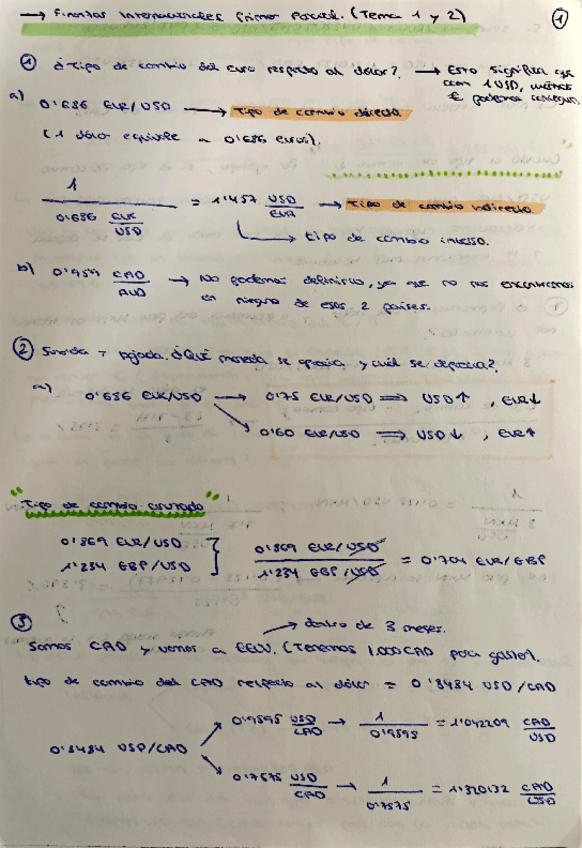 → Finanzas Internacionales Primer Parcial. (Tema 1 y 2) ①
① ¿Tipo de cambio del euro respecto al dólar? → Esto significa que
con 1 USD, menos
€ podemos conseguir
a) 0'686 EUR/USD → Tipo de cambio directo.
(1 dólar equivale a 0'686 euros).
1 / 0'686 EUR/USD = 1'457 USD/EUR → Tipo de cambio indirecto
↳ tipo de cambio inverso.
b) 0'959 CAD/AUD → No podemos definirlo, ya que no nos encontramos
en ninguno de esos 2 países.
② Subida y bajada. ¿Qué moneda se aprecia y cuál se deprecia?
a) 0'686 EUR/USD → 0'75 EUR/USD ⇒ USD↑, EUR↓
→ 0'60 EUR/USD ⇒ USD↓, EUR↑
"Tipo de cambio cruzado"
0'869 EUR/USD
1'234 GBP/USD
0'869 EUR/USD / 1'234 GBP/USD = 0'704 EUR/GBP
③ → dentro de 3 meses.
Somos CAD y vamos a EEUU. (Tenemos 1.000 CAD para gastar).
tipo de cambio del CAD respecto al dólar = 0'8484 USD/CAD
0'8484 USD/CAD
0'9595 USD/CAD → 1 / 0'9595 = 1'042209 CAD/USD
0'7575 USD/CAD → 1 / 0'7575 = 1'320132 CAD/USD